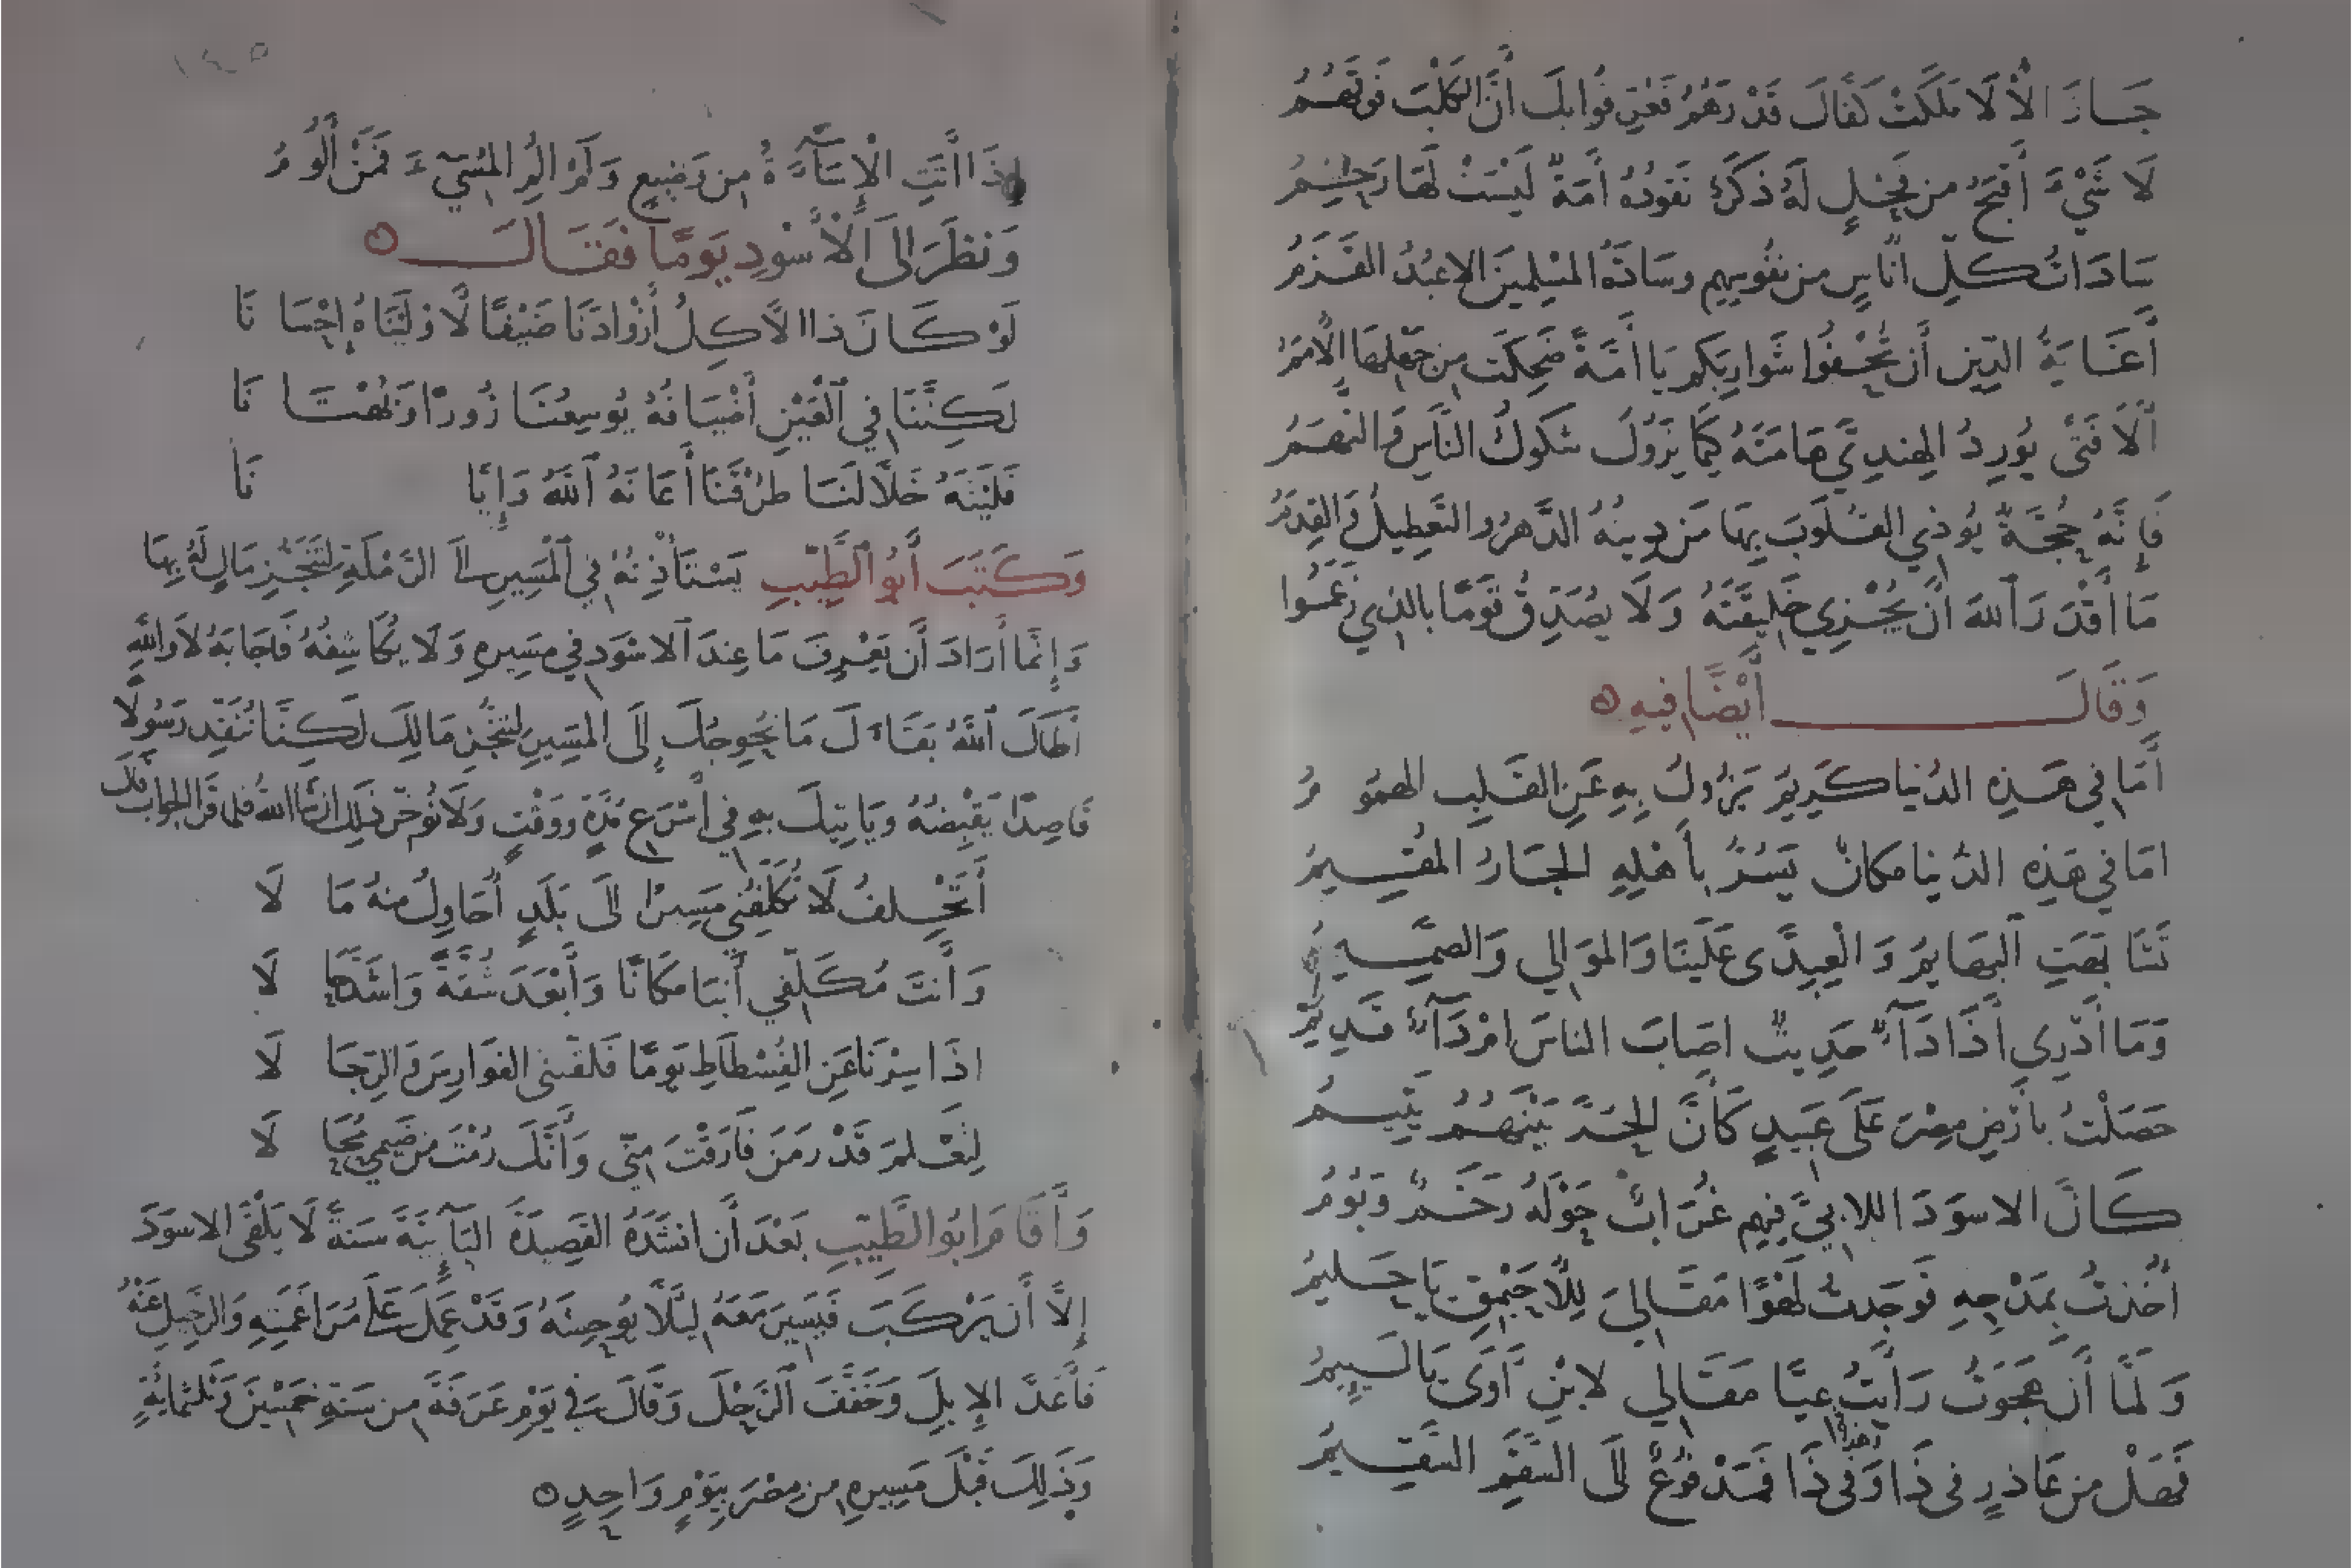 جَازَ الأُلَى مَلَكَتْ كَفَّاكَ قَدْرَهُمُ فَعُرِّفُوا بِكَ أَنَّ الْكَلْبَ فَوْقَهُمُ
لَا شَيْءَ أَقْبَحُ من فَحْلٍ لَهُ ذَكَرٌ تَقُودُهُ أَمَةٌ لَيْسَتْ لَهَا رَحِمُ
سَادَاتُ كلِّ انَاسٍ من نفُوسِهِم وسَادَةُ المسْلِمينَ الاعبُدُ القَزَمُ
أَغَايَةُ الدِّينِ أَن تُحْفُوا شَوَارِبَكم يَا أُمَّةً ضَحِكَت مِن جَهْلِهَا الأُمَمُ
أَلَا فَتًى يُورِدُ الهِندِيَّ هَامَتَهُ كَيْمَا يَزُولَ شكوكُ النَّاسِ وَالتهَمُ
فَإِنَّهُ حُجَّةٌ يُوذي القُلُوبَ بِهَا مَن دِينُهُ الدَّهرُ والتَّعطِيلُ وَالقِدَمُ
مَا أَقْدَرَ اللهَ أَنْ يُخْزِي خَلِيقَتَهُ وَلَا يصَدِّقُ قَوْمًا بالذِي زَعَمُوا
وَقَالَ أَيْضًا فِيهِ
أَمَا في هَذِهِ الدُنيا كَرِيمٌ يَزُولُ بِهِ عَنِ القَلبِ الهمُومُ
امَا في هَذِهِ الدُّنيا مكانٌ يَسُرُّ بأَهْلِهِ الجَارُ المقُيمُ
تَشَابَهَتِ الْبَهايمُ وَالْعِبِدَّى عَلَيْنَا وَالموَالي وَالصَّمِيمُ
وَمَا أَدْرِي أَذَا دَآءٌ حَدِيثٌ اصَابَ الناسَ امْ دَآءٌ قَدِيمُ
حَصَلْتُ بأَرْضِ مِصْرَ عَلَى عَبِيدٍ كَأَنَّ الحُرَّ بَيْنَهُمُ يَتِيمُ
كَأَنَّ الاسوَدَ اللابيَّ فِيهِم غُرَابٌ حَوْلَهُ رَخَمٌ وَبُومُ
أُخِذتُ بِمَدْحِهِ فَوَجَدتُ لَهْوًا مَقَالِيَ لِلأُحَيْمِقِ يَا حَلِيمُ
وَلَمَّا أَن هَجَوتُ رَأَيْتُ عيًّا مقَالِي لابْنِ آوَى يَا لَئِيمُ
فَهَلْ من عَاذرٍ في ذَا وَفي ذَا فَمَدْفُوعٌ إلَى السَّقَمِ السَّقِيمُ
١٤٥
إِذَا أَتَتِ الْإِسَآءَةُ مِن وَضِيعٍ وَلَمْ أَلُمِ المُسِيءَ فَمَنْ أَلُومُ
وَنَظَرَ إلَى الْأَسْودِ يَوْمًا فقَالَ
لَوْ كَانَ ذا الآكِلُ أَزْوَادَنَا ضَيْفًا لأَوْلَيْنَاهُ إِحْسَانَا
لَكِنَّنَا فِي الْعَيْنِ أَضْيَافُهُ يُوسِعُنَا زُورًا وَبُهْتَانَا
فَلَيْتَهُ خَلَّا لَنَا طرْقَنَا أَعَانَهُ اللهُ وَإِيَّانَا
وَكَتَبَ أَبُو الطَّيِّبِ يَسْتَأْذِنُهُ فِي الْمَسِيرِ الَى الرَّمْلَةِ لِتَنَجُّزِ مَالٍ لَهُ بِهَا
وَإِنَّمَا أَرَادَ أَن يَعْرِفَ مَا عِندَ الاسْوَدِ في مَسِيرِهِ وَلَا يكَاشِفهُ فَأَجَابَهُ لَا وَاللَّهِ
أَطَالَ اللهُ بَقَاءَكَ مَا نُحْوِجُكَ إِلَى المَسِيرِ لِتَنَجُّزِ مَالِكَ لَكِنَّا نُنْفِذُ رَسُولًا
قَاصِدًا يَقْبِضُهُ وَيَاتِيكَ بِهِ في أَسْرَعِ مُدَّةٍ وَوَقْتٍ وَلَا نُؤَخّر ذَلِكَ ان شَا اللهُ فلما قَرَا الجوابَ قَالَ
أَتَحْلفُ لَا تُكَلِّفُنِي مَسِيرًا إلَى بَلَدٍ أُحَاوِلُ مِنهُ مَالَا
وَأَنتَ مُكَلِّفِي أَنْبَا مَكَانًا وَأَبْعَدَ شُقَّةً وَاشَدَّ حَالَا
اذَا سِرْنَا عَنِ الفُسْطَاطِ يَومًا فَلَقِّنِي الفوَارِسَ وَالرِّجَالَا
لِتَعْلمَ قَدْرَ مَن فَارَقْتَ مِنِّي وَأَنَّكَ رُمْتَ من ضَيمِي مُحَالَا
وَأَقَامَ ابُو الطَّيّبِ بَعْدَ أَن انشَدَهُ القَصِيدَةَ البَآئِيَّةَ سَنَةً لَا يَلْقَى الاسوَدَ
إِلَّا أَن يَرْكَبَ فَيَسِيرَ مَعَهُ لِيَلَّا يُوحِشَهُ وَقَدْ عَمِلَ عَلَى مُرَاغَمَتِهِ وَالرَّحِيلِ عَنْهُ
فَأَعَدَّ الإِبلَ وَخَفَّفَ الرَّحْلَ وَقَالَ في يَوْمِ عَرَفَةَ مِن سَنَةِ خَمْسِينَ وَثَلثمايَةٍ
وَذَلِكَ قَبْلَ مَسِيرِهِ مِن مِصْرَ بِيَوْمٍ وَاحِدٍ